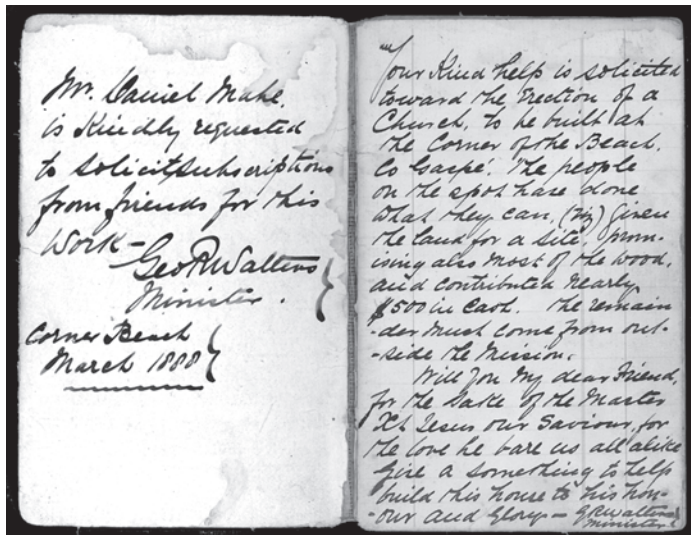 Mr. Daniel Mahe,
is Kindly requested
to solicit subscriptions
from friends for this
Work—
Geo R Walters
Minister.
Corner Beach
March 1888
"Your Kind help is solicited
toward the Erection of a
Church, to be built at
the Corner of the Beach,
Co Gaspé. The people
on the spot have done
what they can, (viz) Given
the land for a site, prom-
ising also most of the wood,
and contributed nearly
$500 in Cash. The remain
-der must come from out-
-side the Mission.
Will you my dear Friend,
for the sake of the Master
Xt Jesus our Saviour, for
the love he bare us all alike
Give a something to help
build this house to his hon-
-our and Glory— G R Walters
Minister